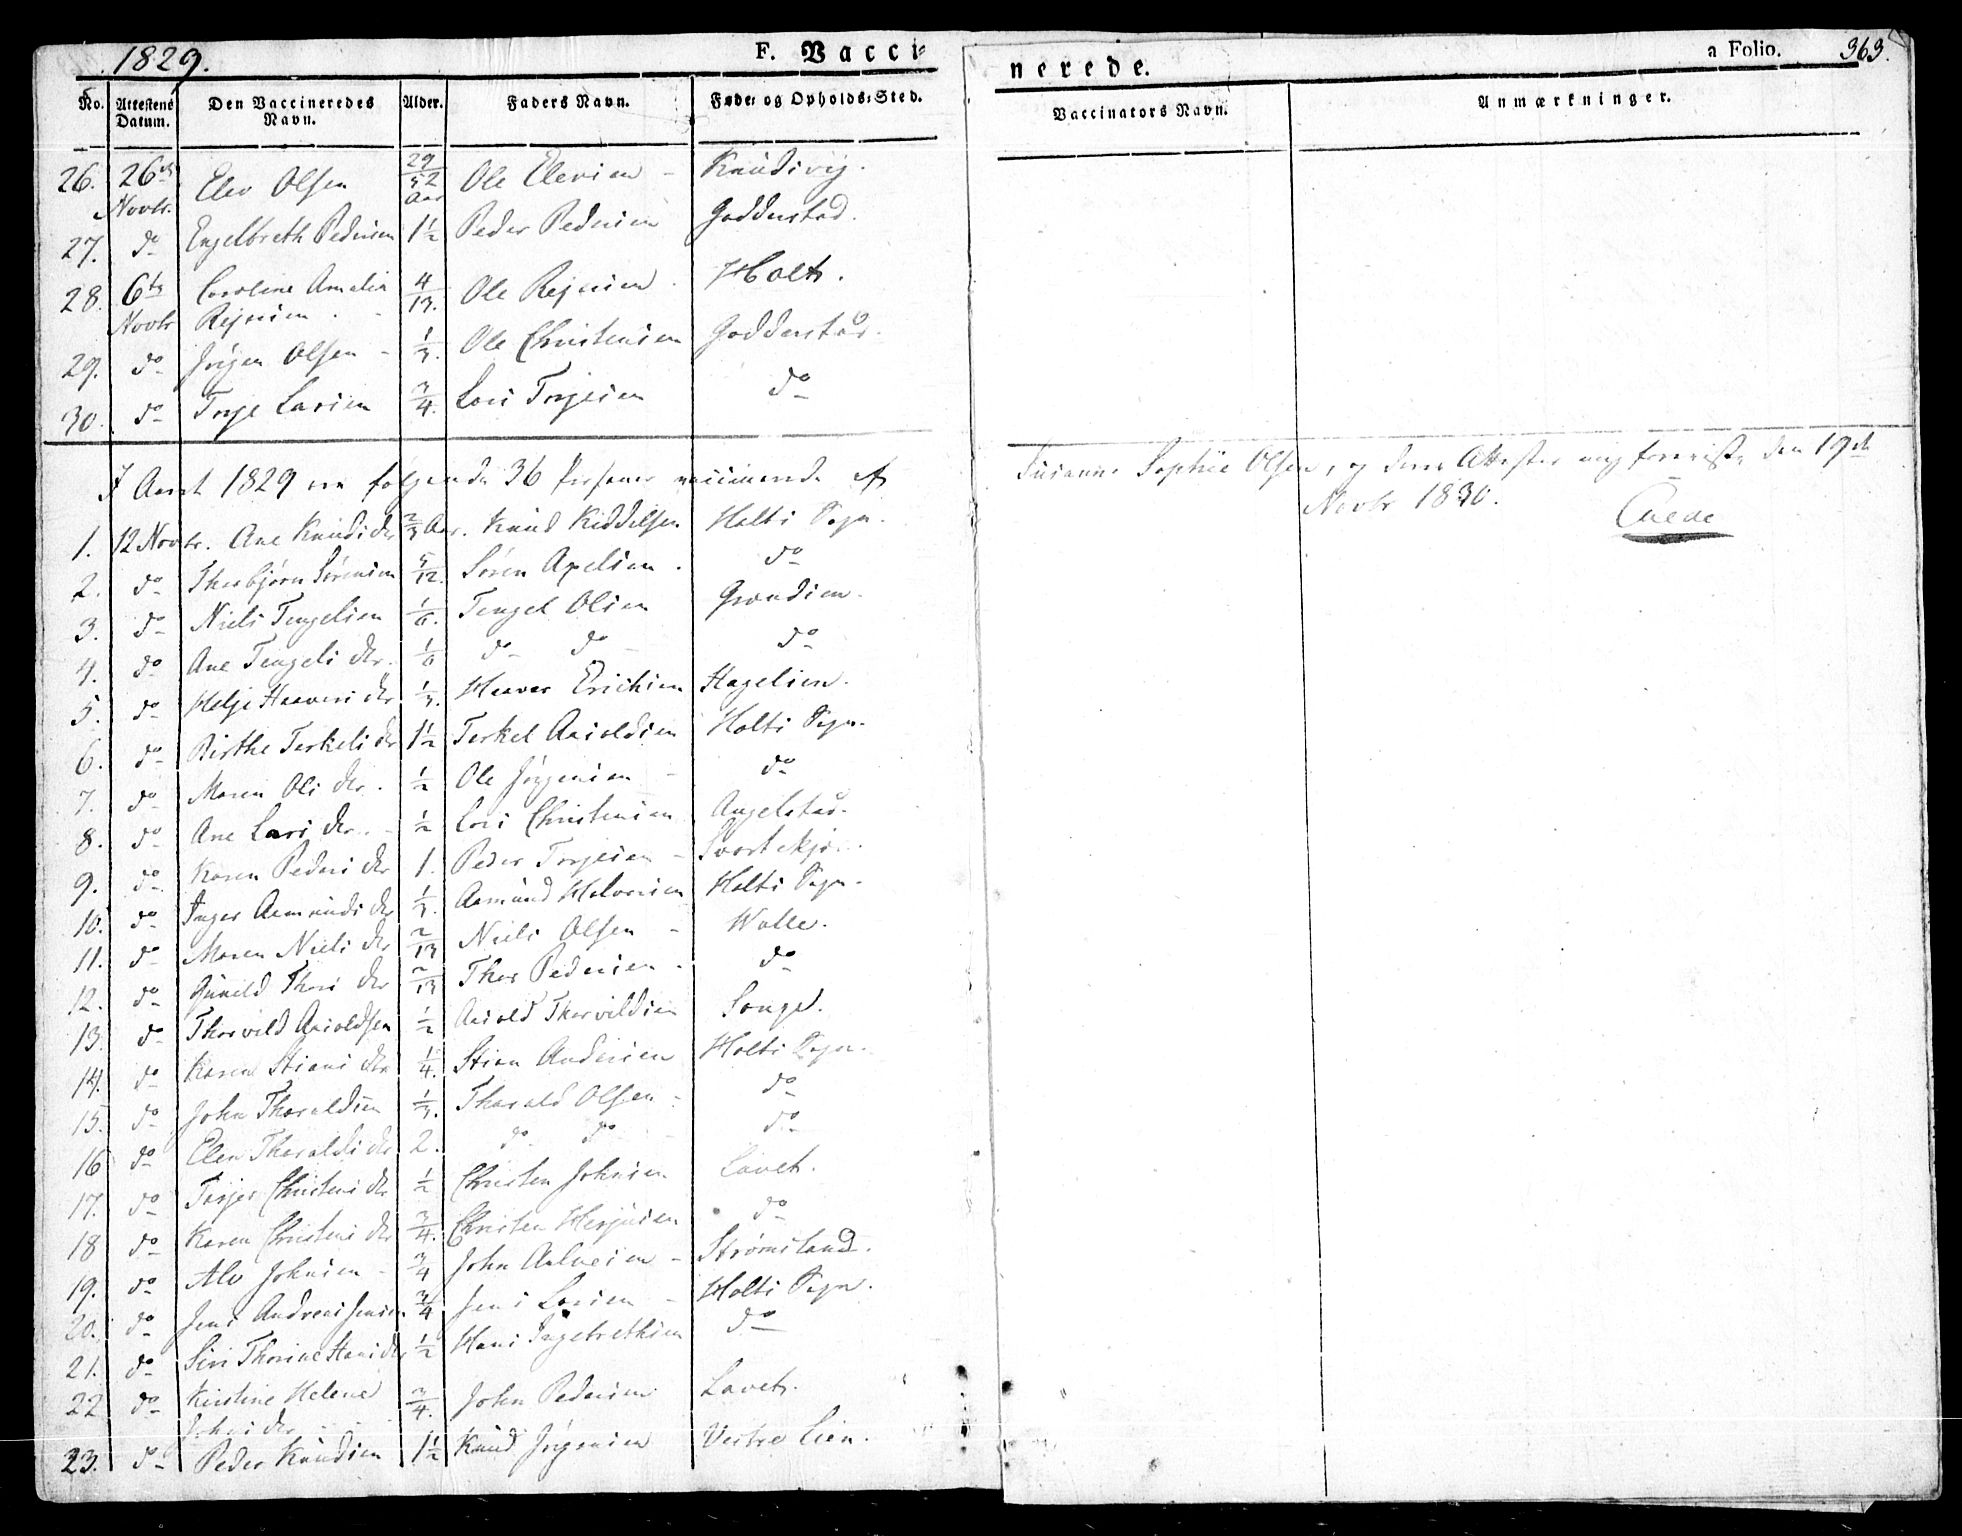 1829.
F. Vacci-
nerede.
a Folio. 363.
No. Attestens Datum. Den Vaccineredes Navn. Alder. Faders Navn. Føde- og Opholds-Sted. Vaccinators Navn. Anmærkninger.
26. 26de Novbr. Elev Olsen 29/52 Aar Ole Elevsen - Knudsvig.
27. do Engelbreth Pedersen 1½ Peder Pedersen Godderstad.
28. 6te Novbr Caroline Amelia Rejersen. - 4/13. Ole Rejersen. Holt.
29. do Jörgen Olsen - 1/3. Ole Christensen Godderstad.
30. do Torje Larsen 3/4. Lars Torjesen do
I Aaret 1829 ere følgende 36 Personer vaccinerede af Susanne Sophie Olsen, og deres Attester mig foreviste den 19de
Novbr 1830.
1. 12 Novbr. Ane Knuds dr 2/3 Aar. Knud Kiddelsen Holts Sogn.
2. do Thorbjørn Sørensen 5/12. Søren Axelsen. do
3. do Niels Tengelsen 1/6. Tengel Olsen Grondsen.
4. do Ane Tengels dr. 1/6 do do do
5. do Helje Haavers dr 1/3. Haaver Erichsen Hagelien.
6. do Birthe Terkels dr 1½ Terkel Aasoldsen Holts Sogn.
7. do Maren Ols dr. ½ Ole Jörgensen - do
8. do Ane Lars dr. - ½ Lars Christensen Angelstad.
9. do Karen Peders dr 1. Peder Torjesen -
10. do Inger Aamunds dr 1/3. Aamund Halvorsen Holts Sogn.
11. do Maren Niels dr 2/13 Niels Olsen - Walle.
12. do Gunild Thors dr 2/13 Thor Pedersen - do
13. do Thorvild Aasoldsen ½ Aasold Thorvildsen Songe.
14. do Karen Stians dr ¼. Stian Andersen Holts Sogn.
15. do John Tharaldsen 1/3. Tharald Olsen - do
16 do Elen Tharalds dr 2. do do - do
17. do Torjer Christens dr ½ Christen Johnsen Lavet.
18 do Karen Christens dr 3/4. Christen Herjusen do
19. do Alv Johnsen - 3/4 John Aalvesen - Strømsland.
20. do Jens Andreas Jensen 3/4 Jens Larsen - Holts Sogn.
21. do Siri Thorine Hans dr ½ Hans Ingebrethsen do
22 do Kirstine Helene Johns dr - 3/4. John Pedersen Lavet.
23. do Peder Knudsen 1½ Knud Jörgensen Vestre Lien.